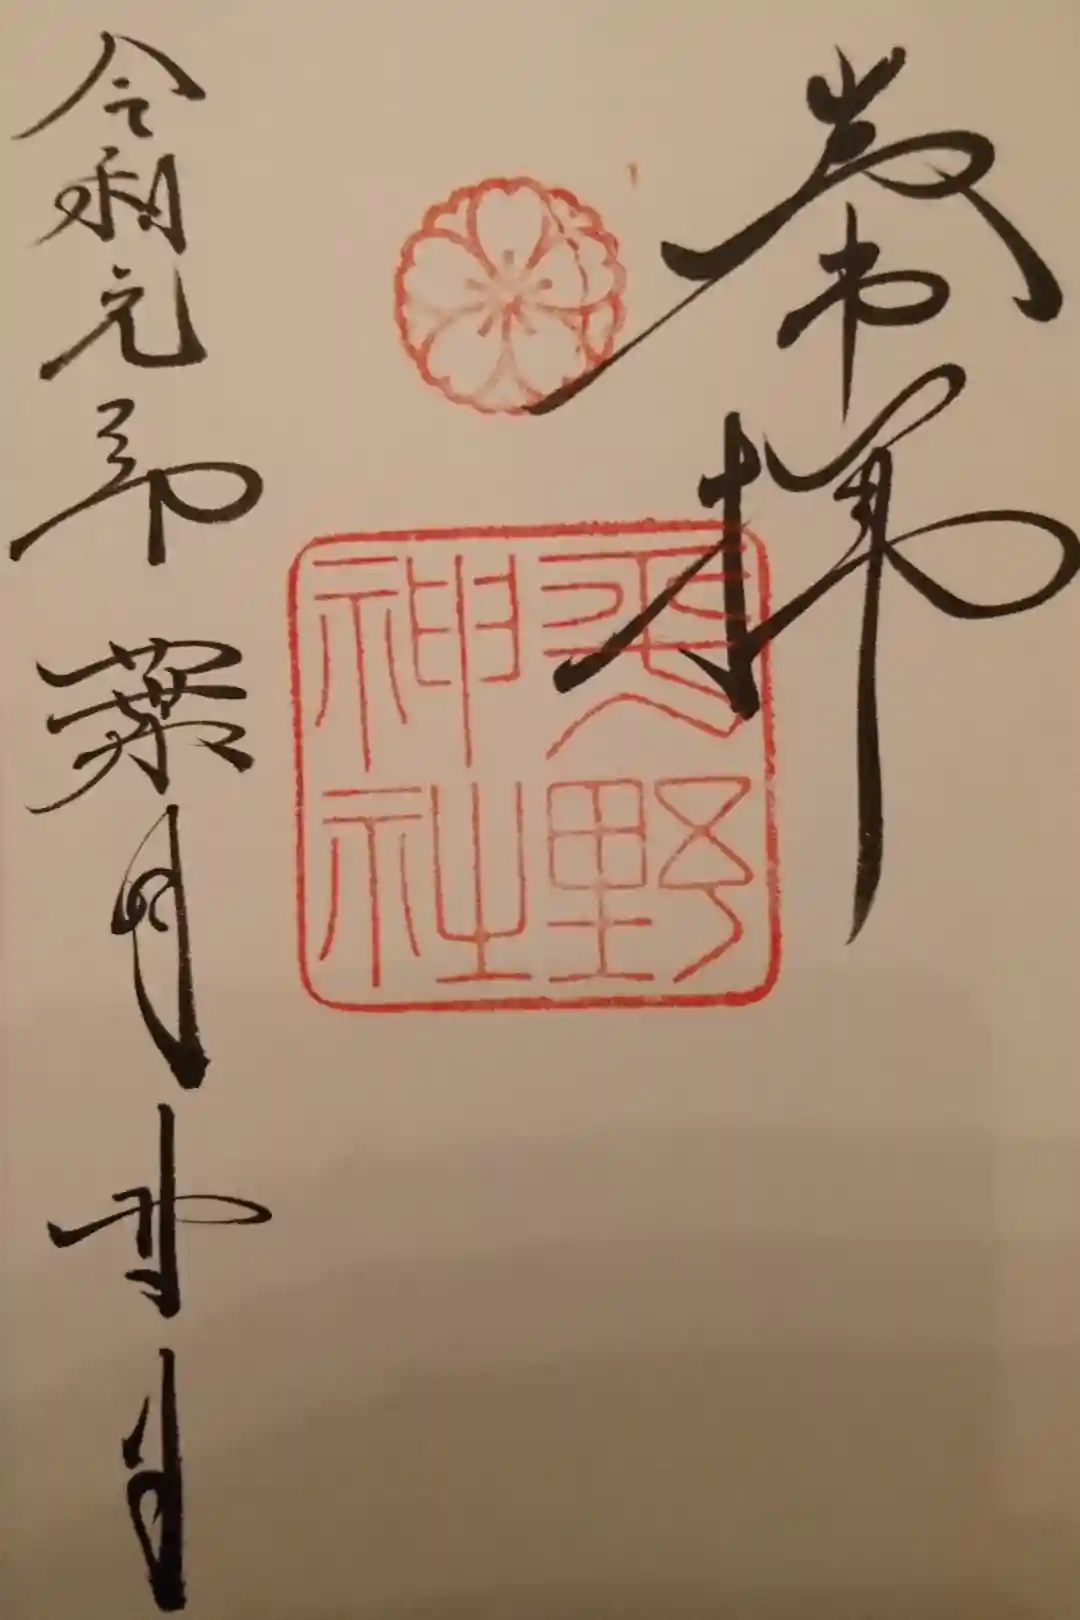 奉拝
平野神社
令和元年葉月廿日